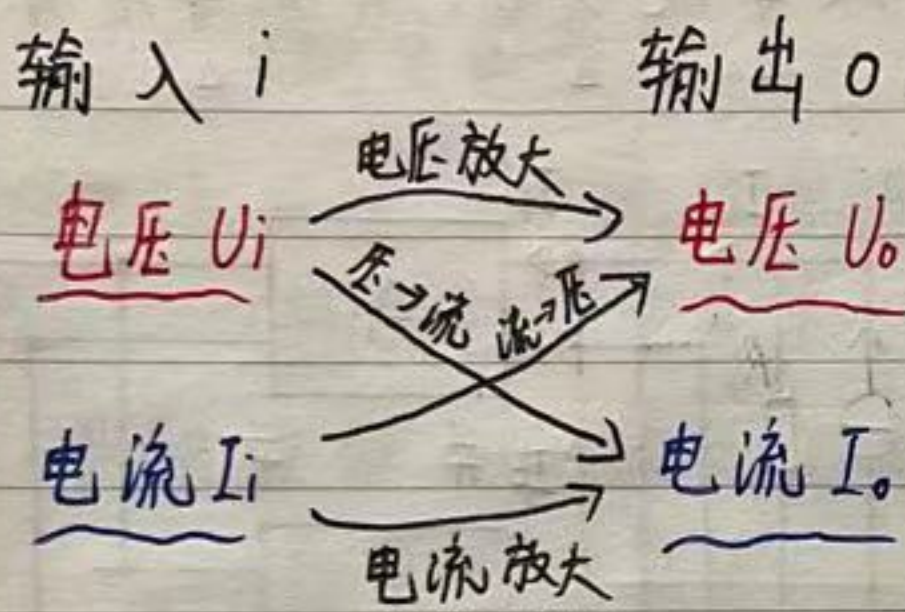 输入 i 输出 o
电压放大
电压 Ui 电压 Uo
压→流 流→压
电流 Ii 电流 Io
电流放大